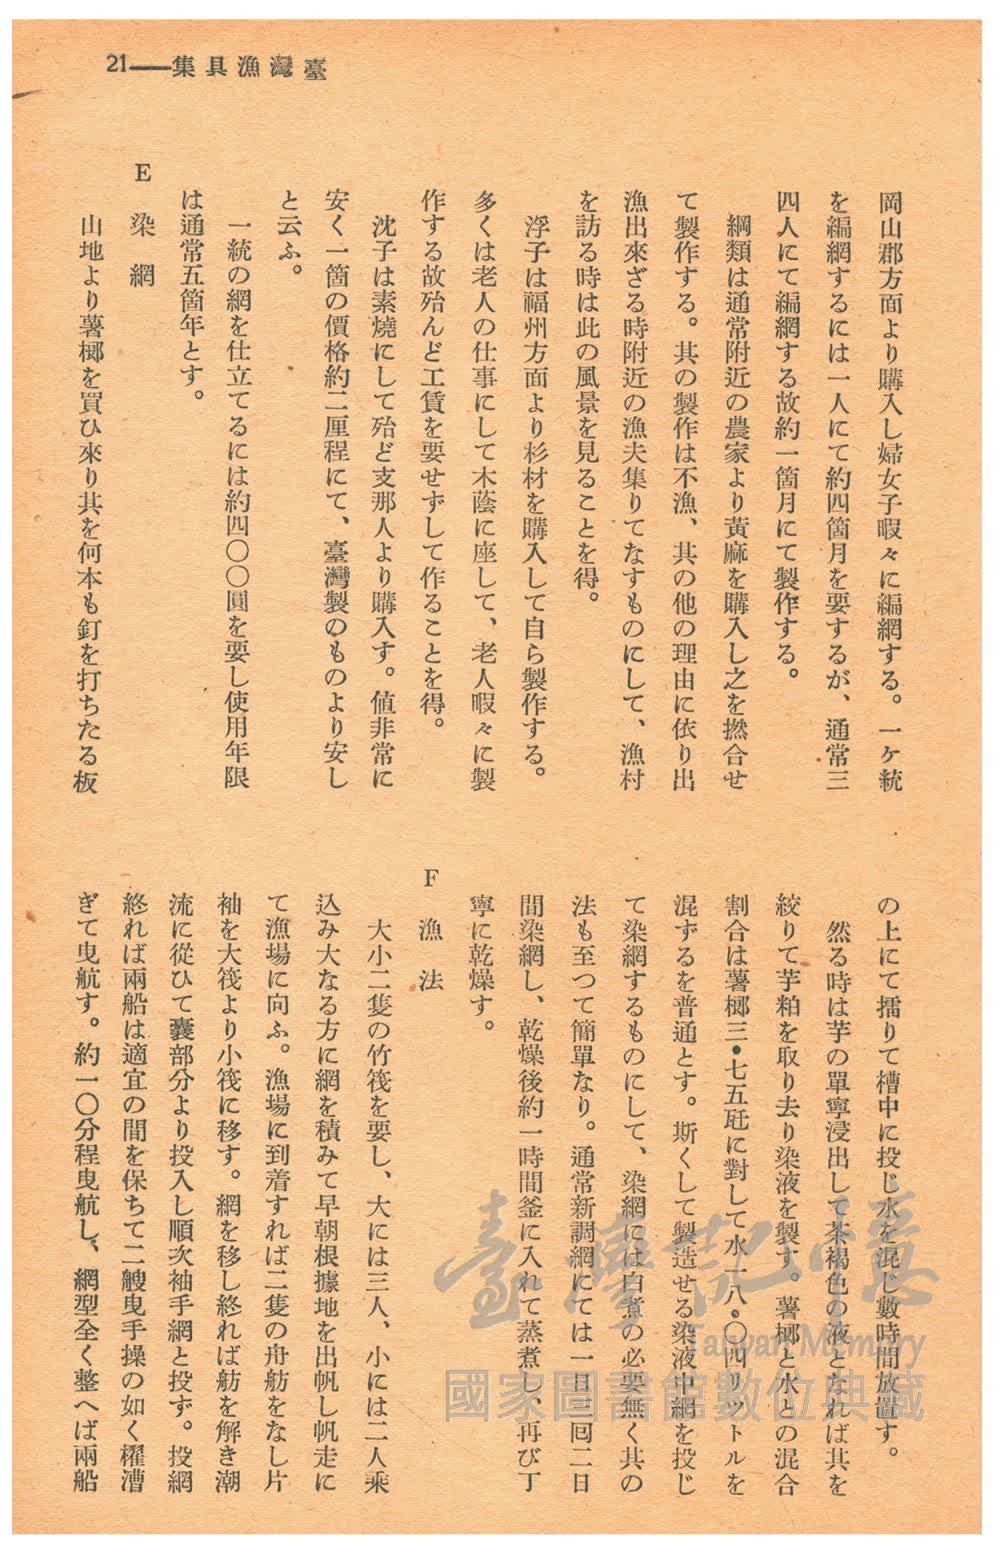 臺灣漁具集――21
岡山郡方面より購入し婦女子暇々に編網する。一ケ統
を編網するには一人にて約四箇月を要するが、通常三
四人にて編網する故約一箇月にて製作する。
綱類は通常附近の農家より黃麻を購入し之を撚合せ
て製作する。其の製作は不漁、其の他の理由に依り出
漁出來ざる時附近の漁夫集りてなすものにして、漁村
を訪る時は此の風景を見ることを得。
浮子は福州方面より杉材を購入して自ら製作する。
多くは老人の仕事にして木蔭に座して、老人暇々に製
作する故殆んど工賃を要せずして作ることを得。
沈子は素燒にして殆ど支那人より購入す。値非常に
安く一箇の價格約二厘程にて、臺灣製のものより安し
と云ふ。
一統の網を仕立てるには約四〇〇圓を要し使用年限
は通常五箇年とす。
E 染網
山地より薯榔を買ひ來り其を何本も釘を打ちたる板
の上にて擂りて槽中に投じ水を混じ數時間放置す。
然る時は芋の單寧浸出して茶褐色の液となれば其を
絞りて芋粕を取り去り染液を製す。薯榔と水との混合
割合は薯榔三・七五瓩に對して水一八・〇四リットルを
混ずるを普通とす。斯くして製造せる染液中網を投じ
て染網するものにして、染網には白煮の必要無く其の
法も至つて簡單なり。通常新調網にては一日三回二日
間染網し、乾燥後約一時間釜に入れて蒸煮し、再び丁
寧に乾燥す。
F 漁法
大小二隻の竹筏を要し、大には三人、小には二人乘
込み大なる方に網を積みて早朝根據地を出帆し帆走に
て漁場に向ふ。漁場に到着すれば二隻の舟舫をなし片
袖を大筏より小筏に移す。網を移し終れば舫を解き潮
流に從ひて囊部分より投入し順次袖手網と投ず。投網
終れば兩船は適宜の間を保ちて二艘曳手操の如く櫂漕
ぎて曳航す。約一〇分程曳航し、網型全く整へば兩船
臺灣記憶
Taiwan Memory
國家圖書館數位典藏